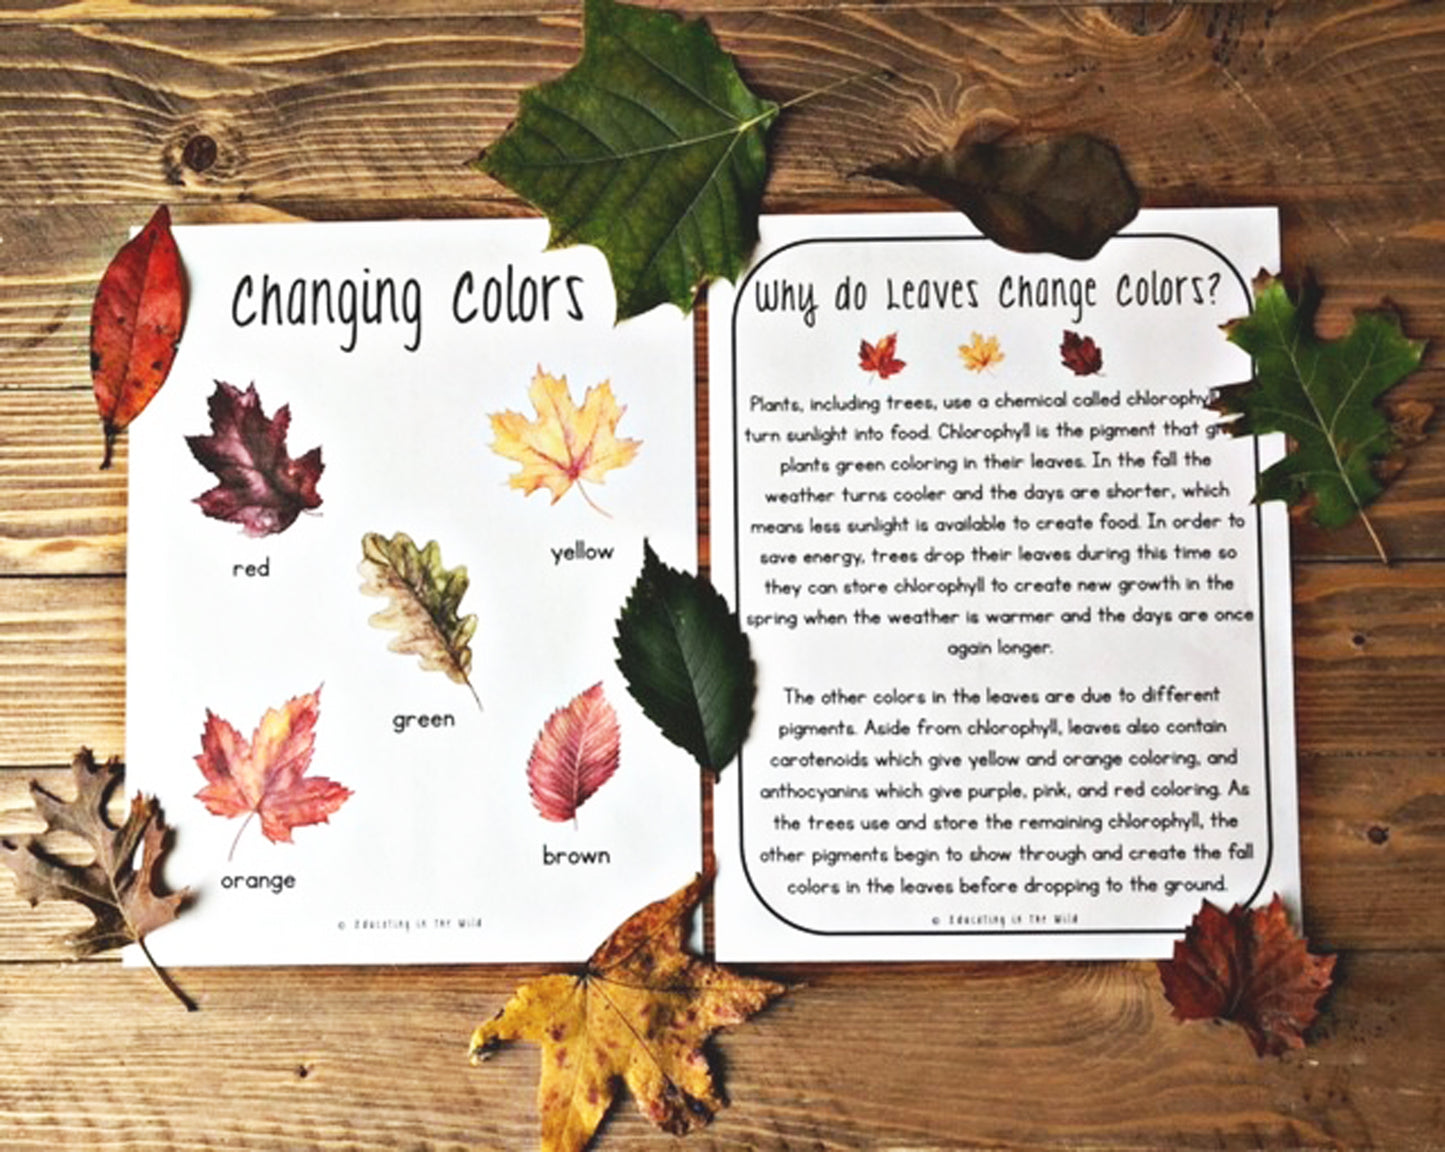 Changing Colors
red
yellow
green
orange
brown
© Educating in the Wild
Why do Leaves Change Colors?
Plants, including trees, use a chemical called chlorophyll
turn sunlight into food. Chlorophyll is the pigment that
plants green coloring in their leaves. In the fall the
weather turns cooler and the days are shorter, which
means less sunlight is available to create food. In order to
save energy, trees drop their leaves during this time so
they can store chlorophyll to create new growth in the
spring when the weather is warmer and the days are once
again longer.
The other colors in the leaves are due to different
pigments. Aside from chlorophyll, leaves also contain
carotenoids which give yellow and orange coloring, and
anthocyanins which give purple, pink, and red coloring. As
the trees use and store the remaining chlorophyll, the
other pigments begin to show through and create the fall
colors in the leaves before dropping to the ground.
© Educating in the Wild